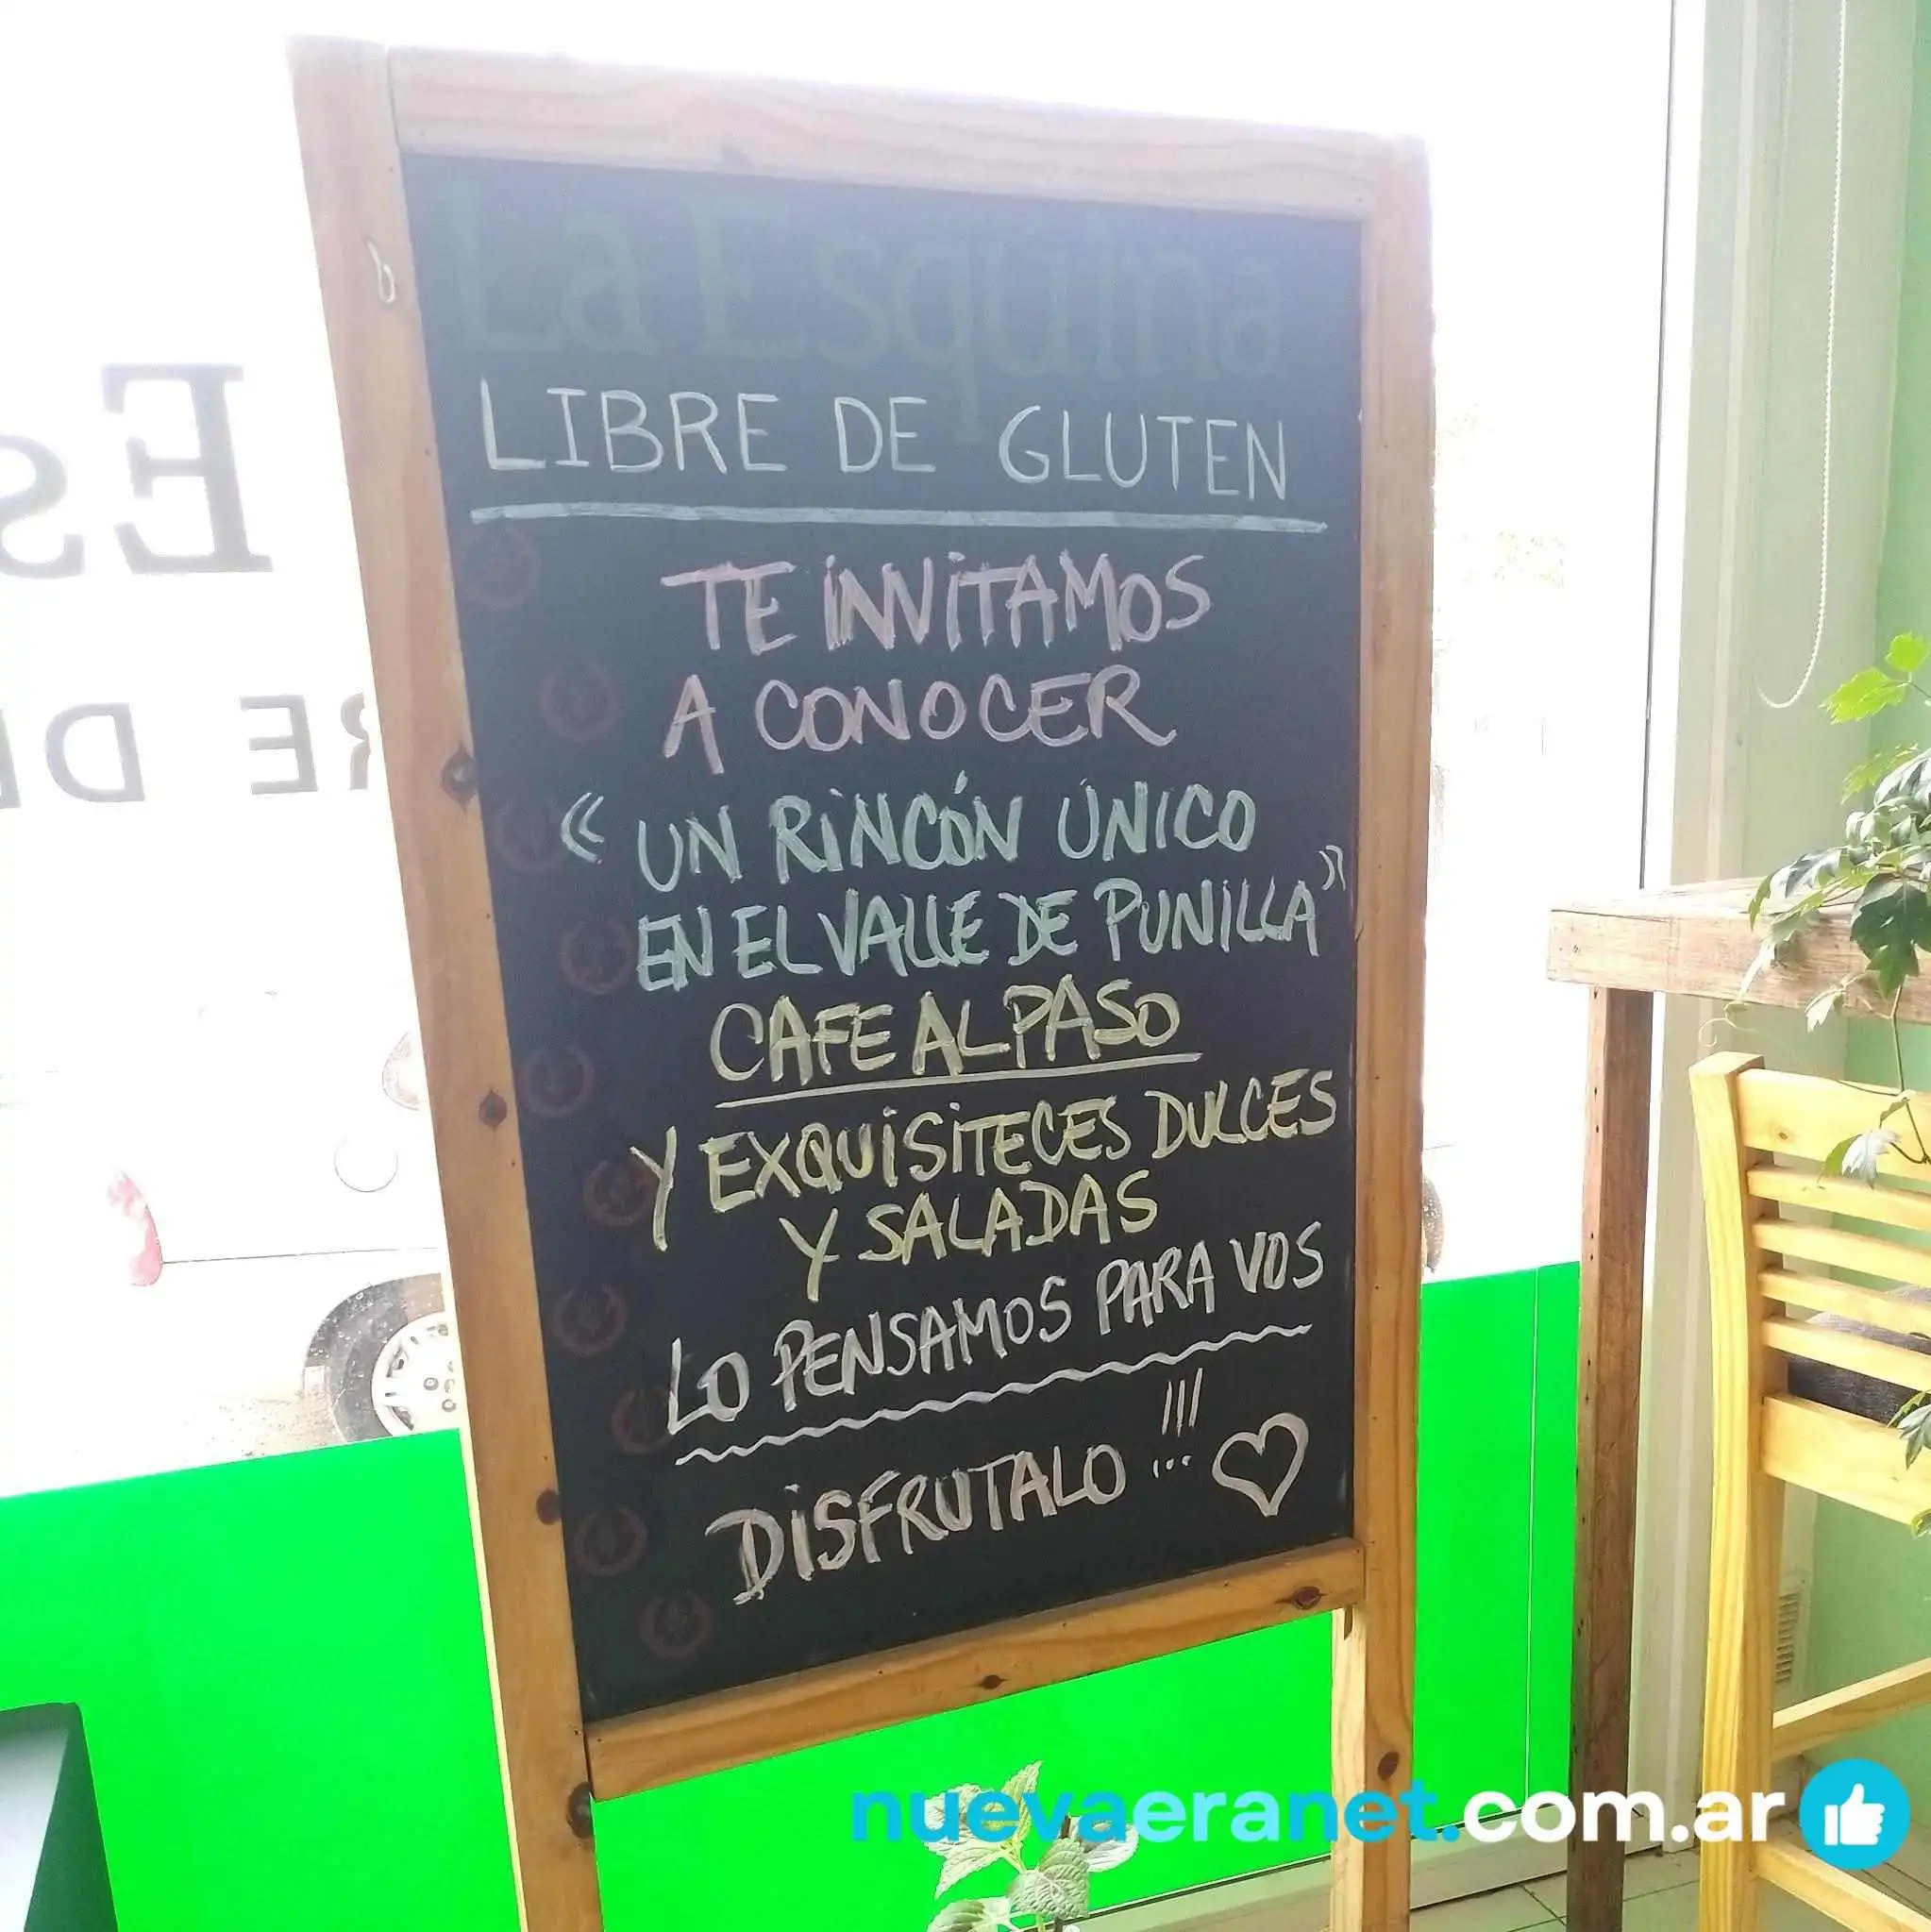 La Esquina
LIBRE DE GLUTEN
TE INVITAMOS
A CONOCER
“UN RINCÓN ÚNICO
EN EL VALLE DE PUNILLA”
CAFE AL PASO
Y EXQUISITECES DULCES
Y SALADAS
LO PENSAMOS PARA VOS
DISFRUTALO !!!
Es
RE DE
nuevaeranet.com.ar